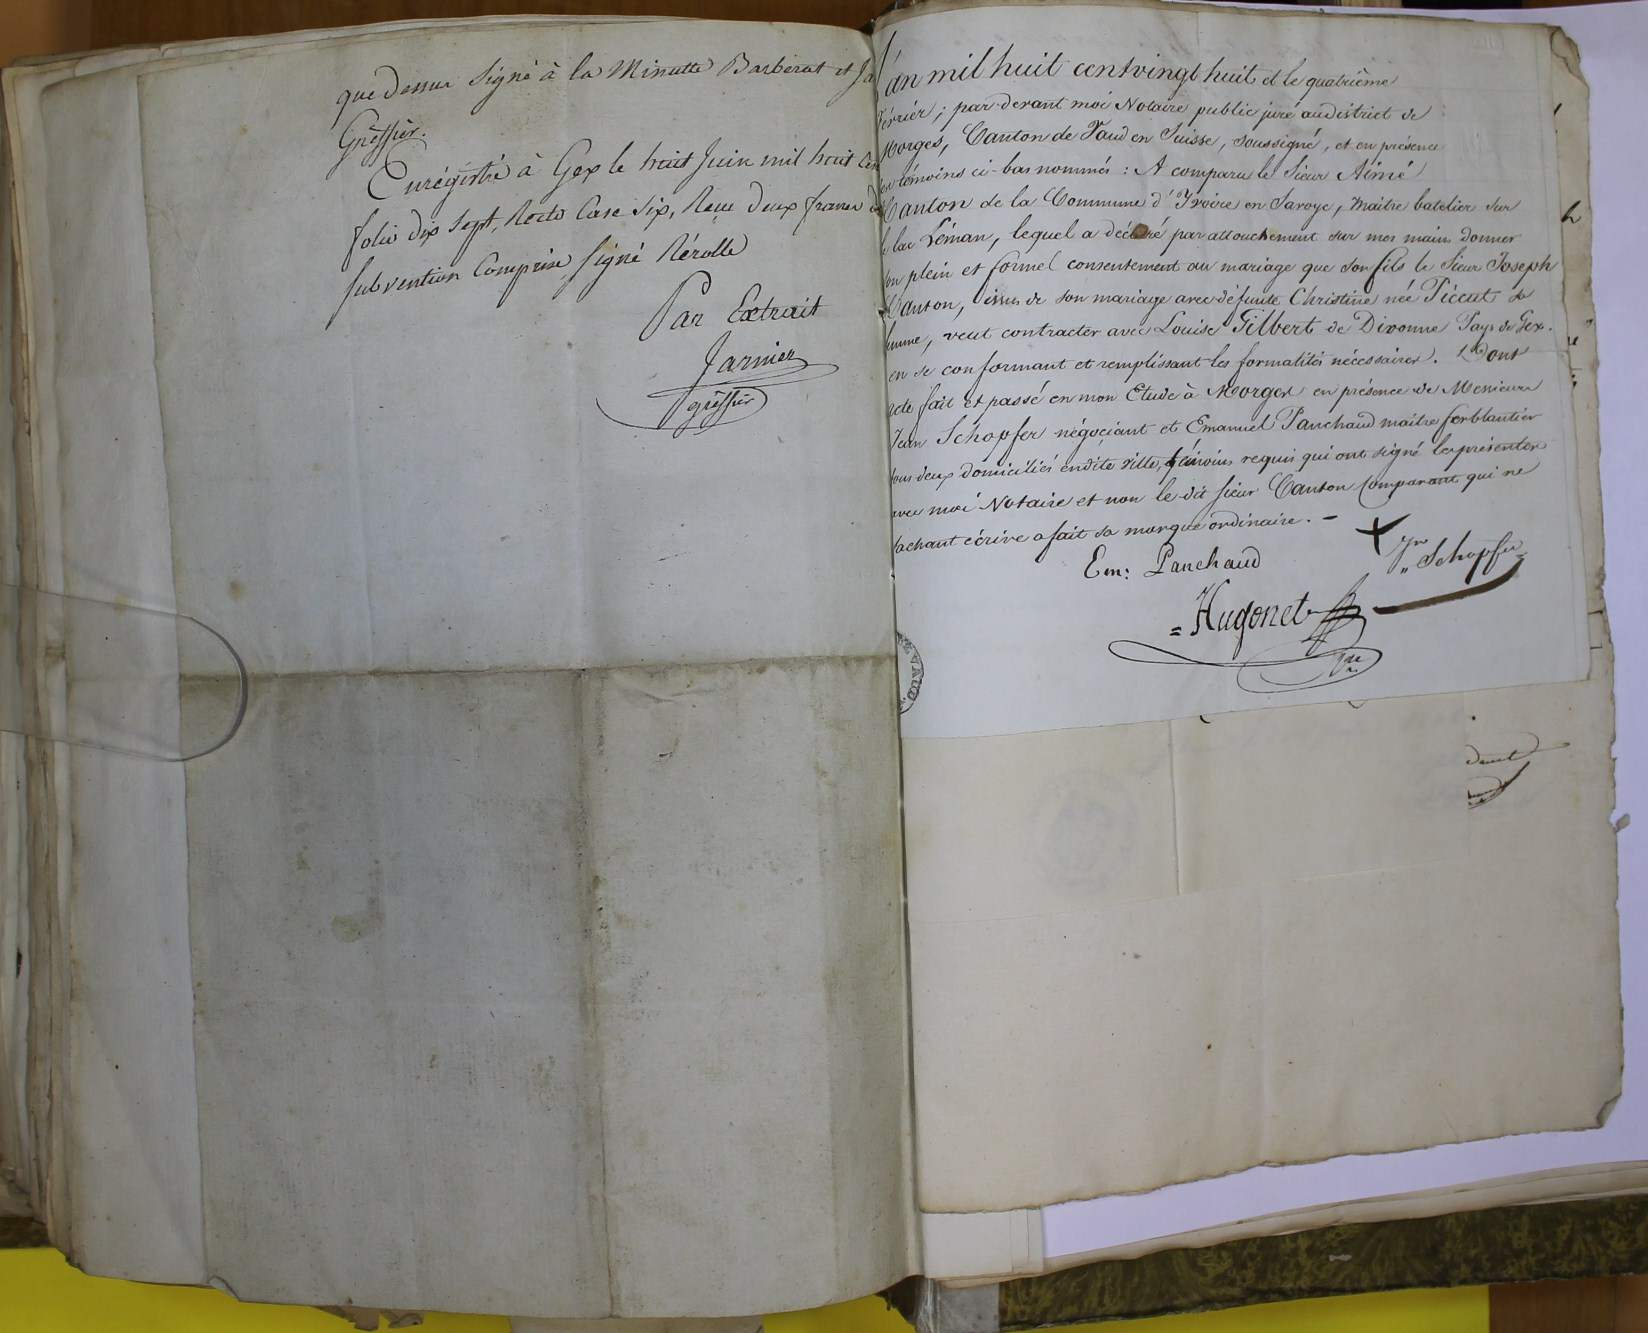 que dessus Signé à la Minutte Barberat et Ja
Gréffier.
Enrégistré à Gex le huit Juin mil huit Cen
folio dix sept, Recto Case Six, Reçu deux francs
Subvention Comprise, Signé Rérolle
Par Extrait
Jarnier
gréffier
L'an mil huit cent vingt huit et le quatrième
Février; par devant moi Notaire public juré au district de
Morges, Canton de Vaud en Suisse, soussigné, et en présence
des témoins ci-bas nommés : A comparu le Sieur Aimé
Canton de la Commune d'Yvoire en Savoye, Maître batelier sur
le lac Léman, lequel a déclaré par attouchement sur mes mains donner
son plein et formel consentement au mariage que son fils le Sieur Joseph
Canton, issus de son mariage avec défunte Christine née Piccut sa
femme, veut contracter avec Louise Gilbert de Divonne Pays de Gex.
en se conformant et remplissant les formalités nécessaires. Dont
acte fait et passé en mon Etude à Morges en présence de Messieurs
Jean Schopfer négociant et Emanuel Panchaud maître ferblantier
tous deux domiciliés endite ville, témoins requis qui ont signé les présentes
avec moi Notaire et non le dit Sieur Canton Comparant qui ne
sachant écrire a fait sa marque ordinaire. –
Em: Panchaud
Jn Schopfer
= Hugonet
VAUD